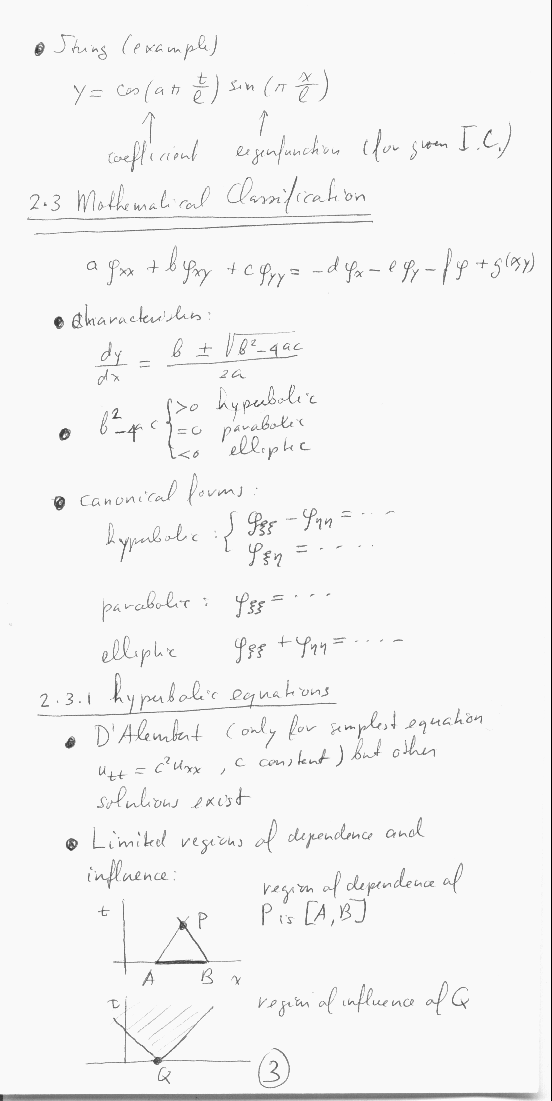 • String (example)
y = cos(aπ t/l) sin(π x/l)
↑ ↑
coefficient eigenfunction (for given I.C.)
2.3 Mathematical Classification
a φxx + b φxy + c φyy = -d φx - e φy - f φ + g(x,y)
• Characteristics:
dy/dx = (b ± √(b²-4ac))/2a
• b²-4ac { >0 hyperbolic
=0 parabolic
<0 elliptic
• canonical forms:
hyperbolic : { φξξ - φηη = ...
φξη = ....
parabolic : φξξ = ...
elliptic φξξ + φηη = ....
2.3.1 hyperbolic equations
• D'Alembert (only for simplest equation
utt = c²uxx , c constant) but other
solutions exist
• Limited regions of dependence and
influence:
region of dependence of
t P P is [A,B]
A B x
region of influence of Q
t
Q
3